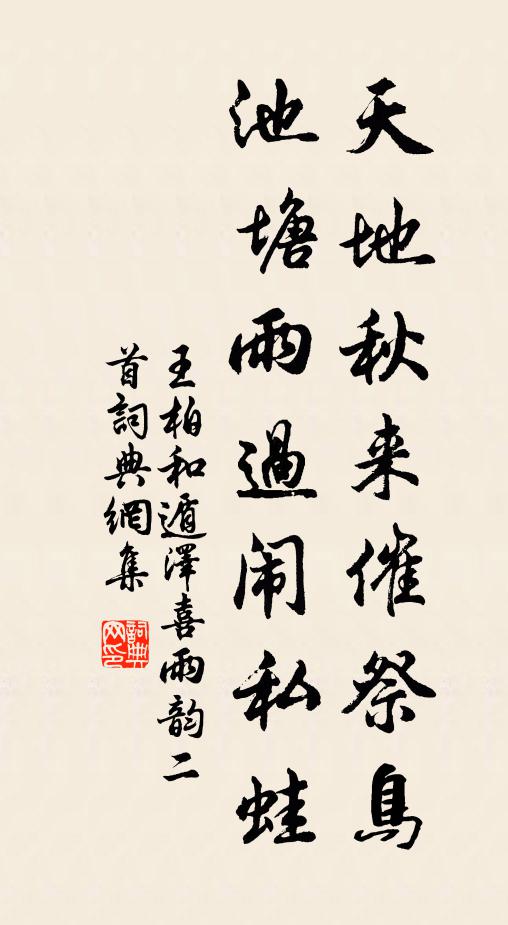 天地秋来催祭鳥
池塘雨過闹私蛙
王柏和遁澤喜雨韵二
首詞典網集
詞典网印